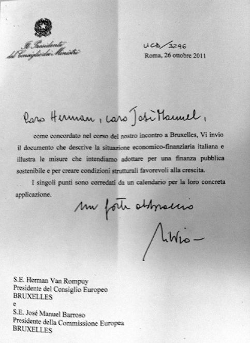 Il Presidente
del Consiglio dei Ministri
UCB/3296
Roma, 26 ottobre 2011
Caro Herman, caro José Manuel,
come concordato nel corso del nostro incontro a Bruxelles, Vi invio
il documento che descrive la situazione economico-finanziaria italiana e
illustra le misure che intendiamo adottare per una finanza pubblica
sostenibile e per creare condizioni strutturali favorevoli alla crescita.
I singoli punti sono corredati da un calendario per la loro concreta
applicazione.
un forte abbraccio
Silvio
S.E. Herman Van Rompuy
Presidente del Consiglio Europeo
BRUXELLES
e
S.E. José Manuel Barroso
Presidente della Commissione Europea
BRUXELLES